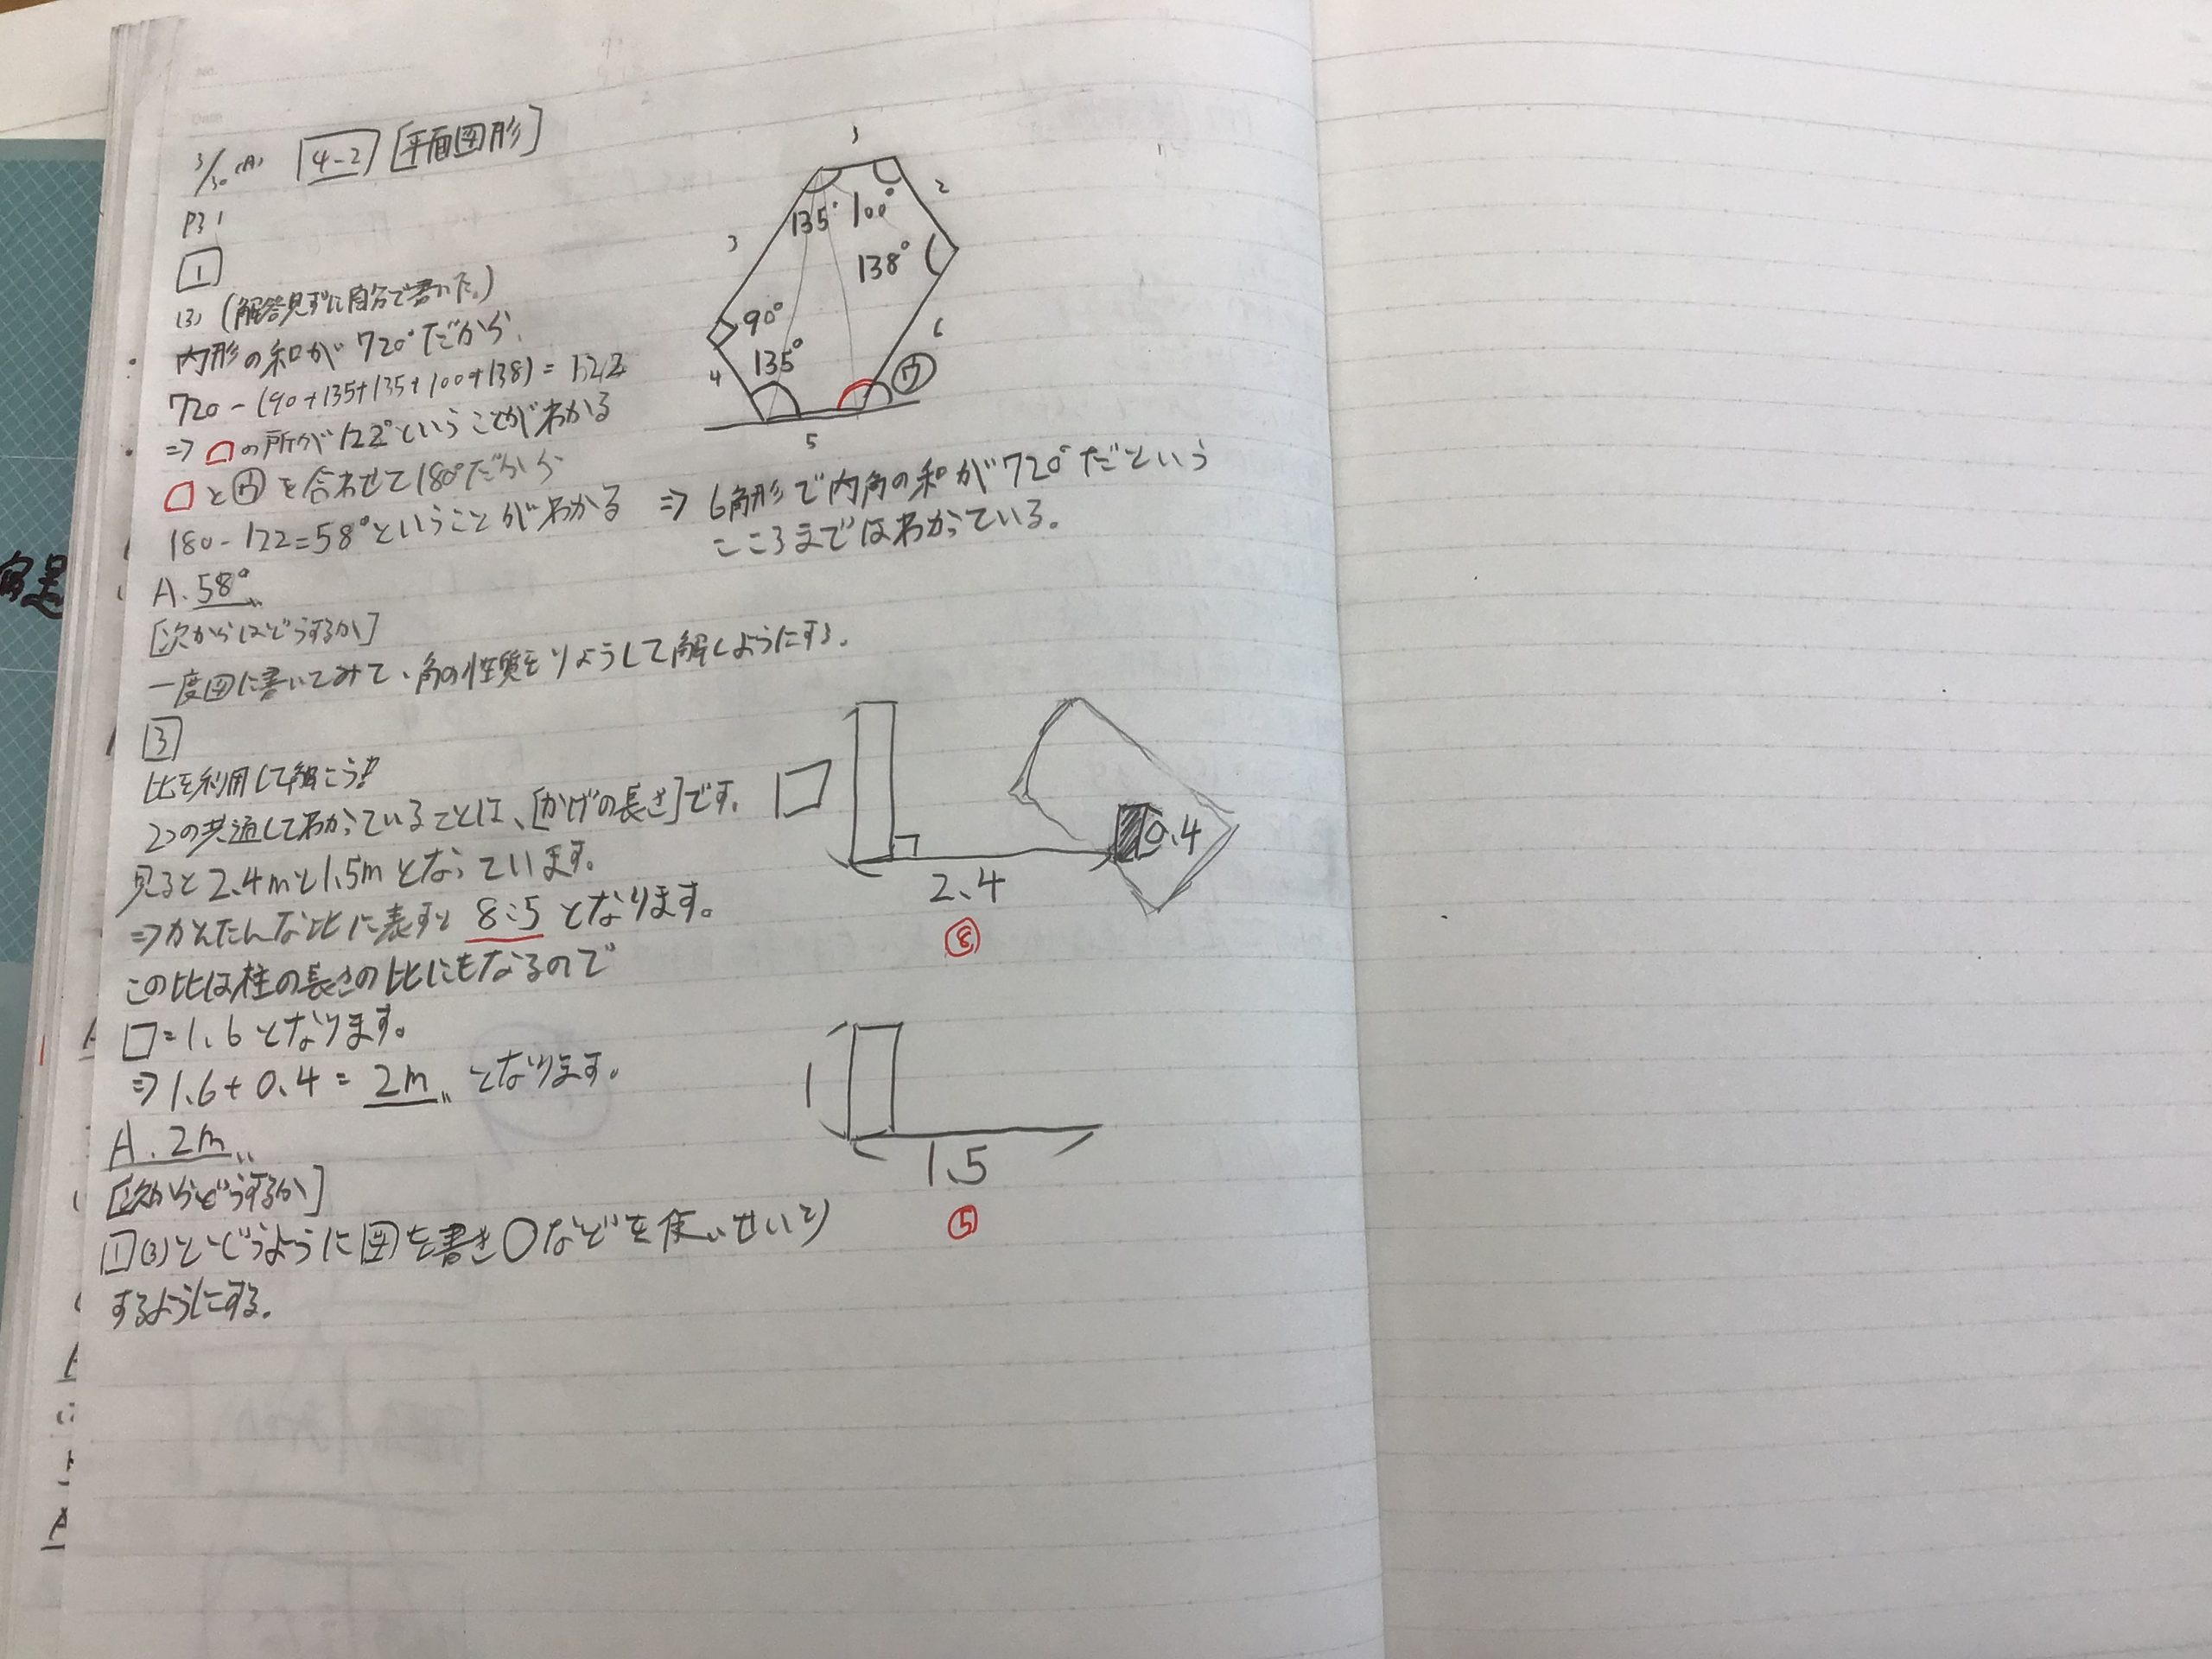 3/30(A) 4-2 [平面図形]
P31
1
(3) (解答見ずに自分で書いた。)
内形の和が720°だから、
720-(90+135+135+100+138)=122
⇒ の所が122°ということがわかる
とウを合わせて180°だから
180-122=58°ということがわかる
A.58°
[次からはどうするか]
一度図に書いてみて、角の性質をりようして解くようにする。
3
2
3
135° 100°
138°
90°
135°
4
6
ウ
5
⇒6角形で内角の和が720°だという
こころまではわかっている。
3
比を利用して解こう!!
2つの共通してわかっていることは、[かげの長さ]です。
見ると2.4mと1.5mとなっています。
⇒かんたんな比に表すと8:5となります。
この比は柱の長さの比にもなるので
□=1.6となります。
⇒1.6+0.4=2mとなります。
A.2m
[次からどうするか]
1(3)とどうように図を書き○などを使いせいり
するようにする。
□
0.4
2.4
⑧
1
1.5
⑤